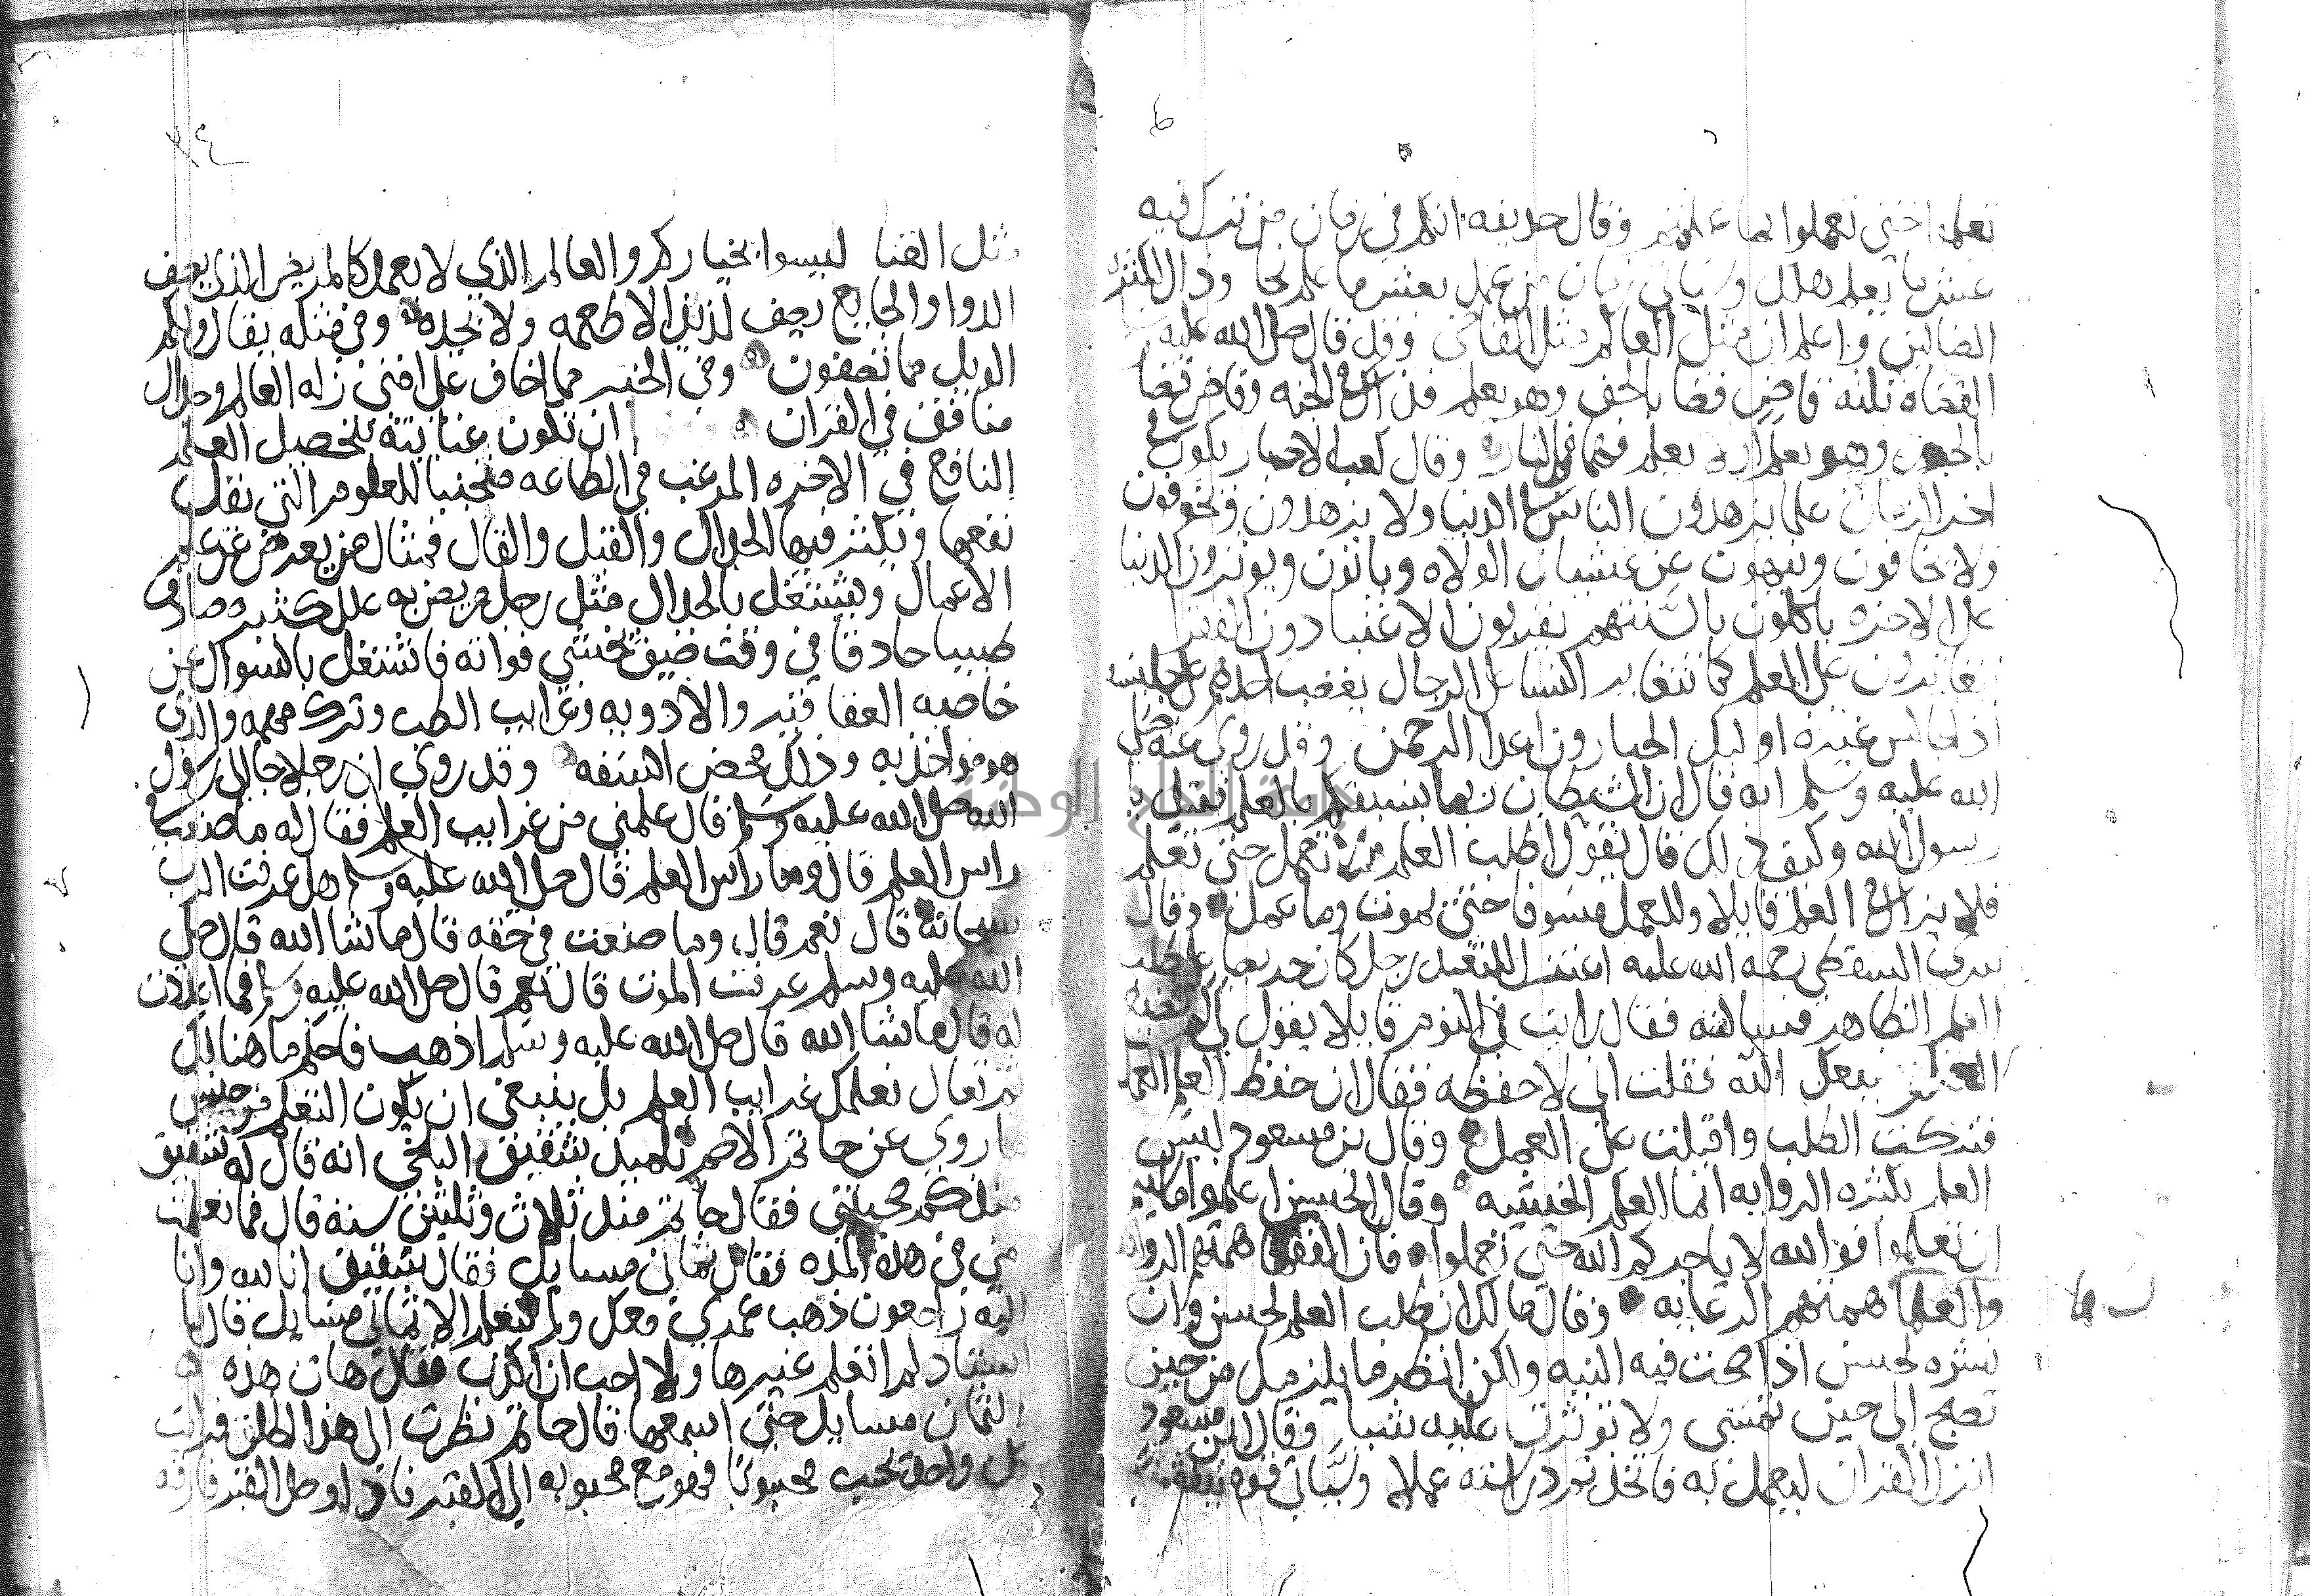 تعلموا حتى تعملوا بما علمتم وقال حذيفه انكم في زمان من ترك فيه
عشر ما يعلم هلك وسياتي زمان من عمل بعشر ما علم نجا وذلك لكثرة
الضالين واعلم ان مثل العالم مثل القاضي وقد قال صلى الله عليه
القضاه ثلثه قاض قضا بالحق وهو يعلم فذلك في الجنه وقاض قضا
بالجور وهو يعلم او لا يعلم فهما في النار وقال كعب الاحبار يكون في
اخر الزمان علما يزهدون الناس في الدنيا ولا يزهدون ويخوفون
ولا يخافون وينهون عن غشيان الولاه وياتون ويوثرون الدنيا
على الاخره ياكلون بالسنتهم يقربون الاغنيا دون الفقرا
يتغايرون على العلم كما تتغاير النسا على الرجال يغضب احدهم على جليسه
اذا جالس غيره اوليك الجبارون اعدا الرحمن وقد روي عنه صلى
الله عليه وسلم انه قال ان الشيطان ربما يسبقكم بالعلم فقيل يا
رسول الله وكيف ذلك قال يقول اطلب العلم ولا تعمل حتى تعلم
فلا يزال في العلم قايلا وللعمل مسوفا حتى يموت وما عمل وقال
سري السقطي رحمه الله عليه اعتزل للتعبد رجل كان حريصا على طلب
العلم الظاهر فسالته فقال رايت في النوم قايلا يقول لي الى كم تضيع
العلم ضيعك الله فقلت اني لاحفظه فقال ان حفظ العلم العمل
فتركت الطلب واقبلت على العمل وقال بن مسعود ليس
العلم بكثره الروايه انما العلم الخشيه وقال الحسن اعلموا ما شيتم
ان تعلموا فوالله لا ياجركم الله حتى تعملوا فان السفها همتهم الروايه
والعلما همتهم الرعايه وقال مالك ان طلب العلم لحسن وان
نشره لحسن اذا صحت فيه النيه ولكن انظر ما يلزمك من حين
تصبح الى حين تمسي ولا توثرن عليه شيا وقال ابن مسعود
انزل القران ليعمل به فاتخذتم دراسته عملا وسياتي قوم يثقفونه
مثل القنا ليسوا بخياركم والعالم الذي لا يعمل كالمريض الذي يصف
الدوا والجايع يصف لذيذ الاطعمه ولا يجده وفي مثله يقال ولكم
الويل مما تصفون وفي الخبر مما اخاف على امتي زله العالم وجدال
منافق في القران ان تكون عنايته بتحصيل العلم
النافع في الاخره المرغب في الطاعه متجنبا للعلوم التي يقل
نفعها ويكثر فيها الجدال والقيل والقال فمثال من يعرض عن علم
الاعمال ويشتغل بالجدال مثل رجل مريض به علل كثيره صادف
طبيبا حاذقا في وقت ضيق يخشى فواته فاشتغل بالسوال عن
خاصيه العقاقير والادويه وغرايب الطب وترك مهمه والذي
هو مواخذ به وذلك محض السفه وقد روي ان رجلا جا الى رسول
الله صلى الله عليه وسلم قال علمني من غرايب العلم فقال له ما صنعت في
راس العلم قال وما راس العلم قال صلى الله عليه وسلم هل عرفت الرب
سبحانه قال نعم قال وما صنعت في حقه قال ما شا الله قال صلى
الله عليه وسلم عرفت الموت قال نعم قال صلى الله عليه وسلم فما اعددت
له قال ما شا الله قال صلى الله عليه وسلم اذهب فاحكم ما هنالك
ثم تعال نعلمك غرايب العلم بل ينبغي ان يكون التعلم من جنس
ما روي عن حاتم الاصم تلميذ شقيق البلخي انه قال له شقيق
منذ كم صحبتني فقال حاتم منذ ثلاث وثلثين سنه قال فما تعلمت
مني في هذه المده فقال ثماني مسايل فقال شقيق انا لله وانا
اليه راجعون ذهب عمري معك ولم تتعلم الا ثماني مسايل قال يا
استاد لم اتعلم غيرها ولا احب ان اكذب فقال هات هذه
الثمان مسايل حتى اسمعها قال حاتم نظرت الى هذا الخلق فرايت
كل واحد يحب محبوبا فهو مع محبوبه الى القبر فاذا وصل القبر فارقه